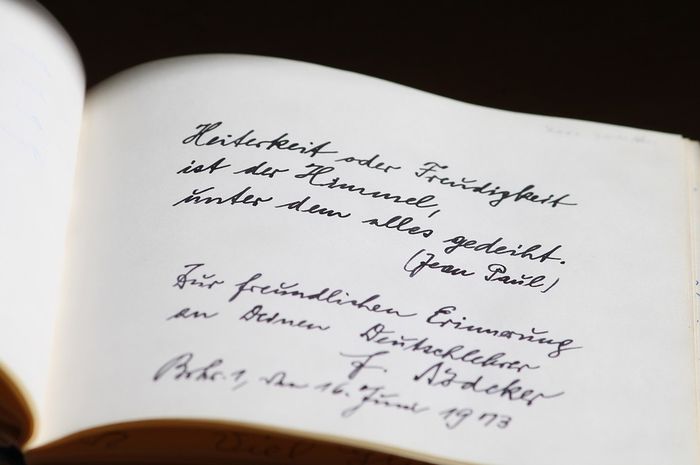 Heiterkeit oder Freudigkeit
ist der Himmel,
unter dem alles gedeiht.
(Jean Paul)
Zur freundlichen Erinnerung
an Deinen Deutschlehrer
F. Lödeker
den 16. Juni 1973
Viel